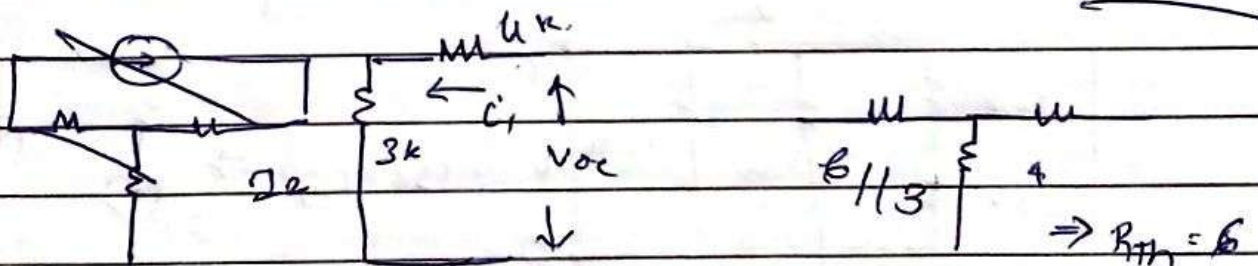 4k
← i₁
3k
Voc
6//3
4
⇒ R_Th = 6